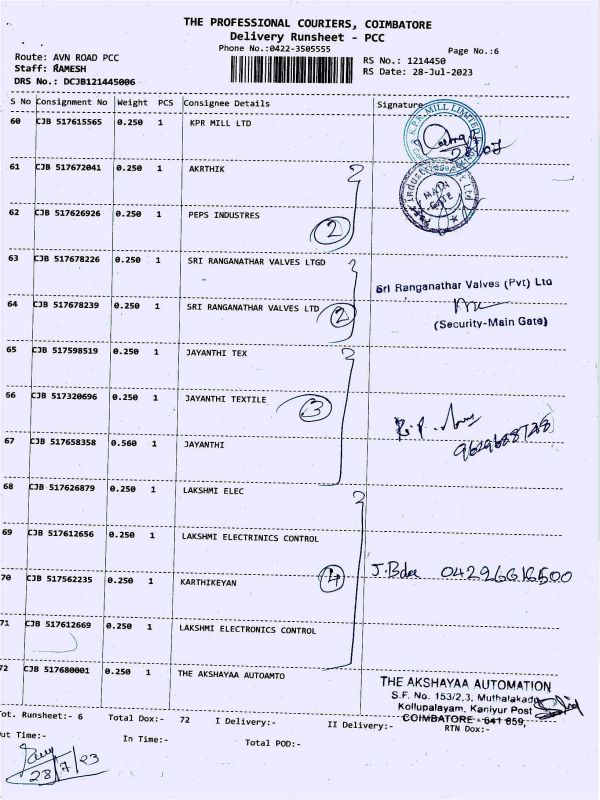 THE PROFESSIONAL COURIERS, COIMBATORE
Delivery Runsheet - PCC
Phone No.:0422-3505555
Page No.:6
Route: AVN ROAD PCC
RS No.: 1214450
Staff: RAMESH
RS Date: 28-Jul-2023
DRS No.: DCJB121445006
S No Consignment No Weight PCS Consignee Details Signature
60 CJB 517615565 0.250 1 KPR MILL LTD
K.P.R. MILL LIMITED
28/07
61 CJB 517672041 0.250 1 AKRTHIK
MAIN
GATE
62 CJB 517626926 0.250 1 PEPS INDUSTRES
2
63 CJB 517678226 0.250 1 SRI RANGANATHAR VALVES LTGD
Sri Ranganathar Valves (Pvt) Ltd
64 CJB 517678239 0.250 1 SRI RANGANATHAR VALVES LTD
2
(Security-Main Gate)
65 CJB 517598519 0.250 1 JAYANTHI TEX
66 CJB 517320696 0.250 1 JAYANTHI TEXTILE
3
67 CJB 517658358 0.560 1 JAYANTHI
68 CJB 517626879 0.250 1 LAKSHMI ELEC
69 CJB 517612656 0.250 1 LAKSHMI ELECTRINICS CONTROL
70 CJB 517562235 0.250 1 KARTHIKEYAN
4
04296616500
71 CJB 517612669 0.250 1 LAKSHMI ELECTRONICS CONTROL
72 CJB 517680001 0.250 1 THE AKSHAYAA AUTOAMTO
THE AKSHAYAA AUTOMATION
S.F. No. 153/2,3, Muthalakada
Kollupalayam, Kaniyur Post
COIMBATORE - 641 659,
Tot. Runsheet:- 6 Total Dox:- 72 I Delivery:- II Delivery:- RTN Dox:-
Out Time:- In Time:- Total POD:-
28/7/23